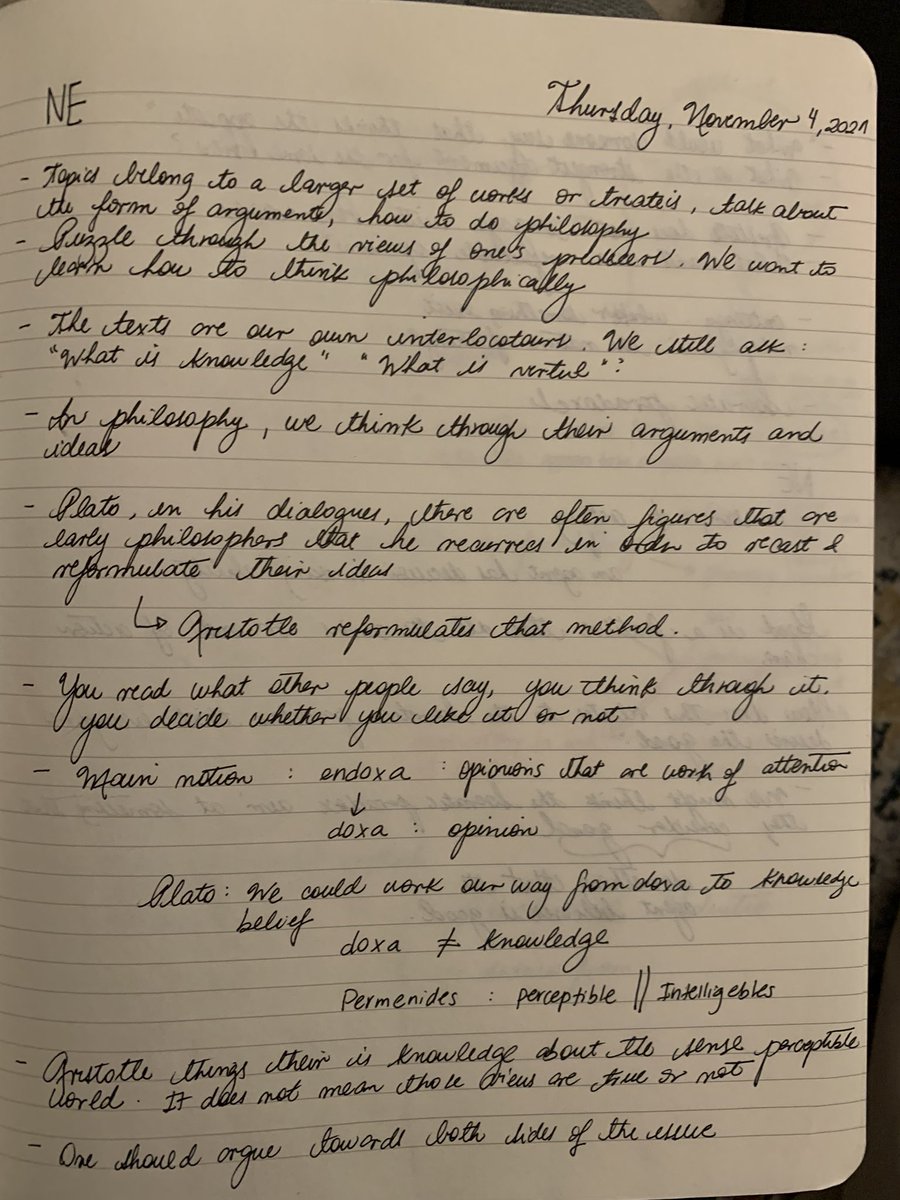 NE
Thursday, November 4, 2021
- Topics belong to a larger set of works or treateis, talk about
the form of arguments, how to do philosophy
- Puzzle through the views of one's preders. We want to
learn how to think philosophically
- The texts are our own interlocotours. We still ask :
"What is knowledge" "What is virtue"?
- In philosophy, we think through their arguments and
ideas
- Plato, in his dialogues, there are often figures that are
early philosophers that he recurrecs in order to recast &
reformulate their ideas
↳ Aristotle reformulates that method.
- You read what other people say, you think through it.
you decide whether you like it or not
- Main notion : endoxa : opionions that are work of attention
↓
doxa : opinion
Plato: We could work our way from doxa to knowledge
belief
doxa ≠ knowledge
Permenides : perceptible || Intelligebles
- Aristotle things their is knowledge about the sense perceptible
world. It does not mean those views are true or not
- One should argue towards both sides of the issue